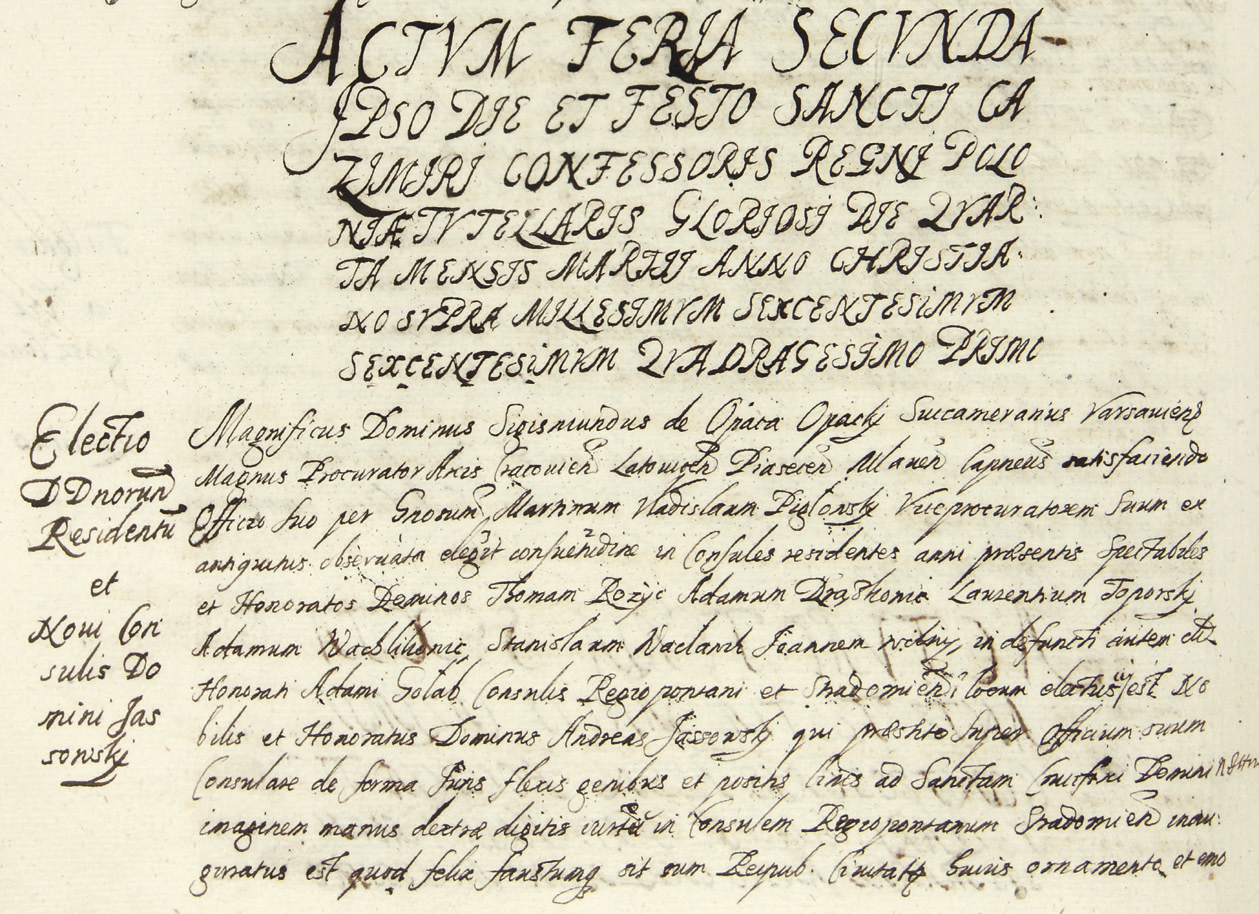 ACTVM FERIA SECVNDA
IPSO DIE ET FESTO SANCTI CA
ZIMIRI CONFESSORIS REGNI POLO
NIÆ TVTELLARIS GLORIOSI DIE QVAR
TA MENSIS MARTII ANNO CHRISTIA
NO SVPRA MILLESIMVM SEXCENTESiMVM
SEXCENTESiMVM QVADRAGESIMO PRIMO
Electio
DDnorum
Residentiu
et
Noui Con
sulis Do
mini Jas
sonskj
Magnificus Dominus Sigismundus de Opaca Opackj Succamerarius Varsauien
Magnus Procurator Arcis Cracouien Capneus satisfaciendo
Officio suo per Gnosum Martinum Vladislaum Viceprocuratorem Suum ex
antiquitus obseruata elegit consuetudine in Consules residentes anni præsentis Spectabiles
et Honoratos Dominos Thomam Adamum Laurentium Toporskj
Adamum Stanislaum Joannem in defuncti autem
Honorati Adami Golab Consulis Regiopontani et Stradomien locum electus est No
bilis et Honoratus Dominus Andreas Jassonskj qui præstito super Officium suum
Consulare de forma Juris flexis genibus et positis ad Sanctam Crucifixi Domini
imaginem manus dextræ digitis in Consulem Regiopontanum Stradomien inau
guratus est quod felix faustumq sit cum Reipub. Ciuitatis huius ornamento et